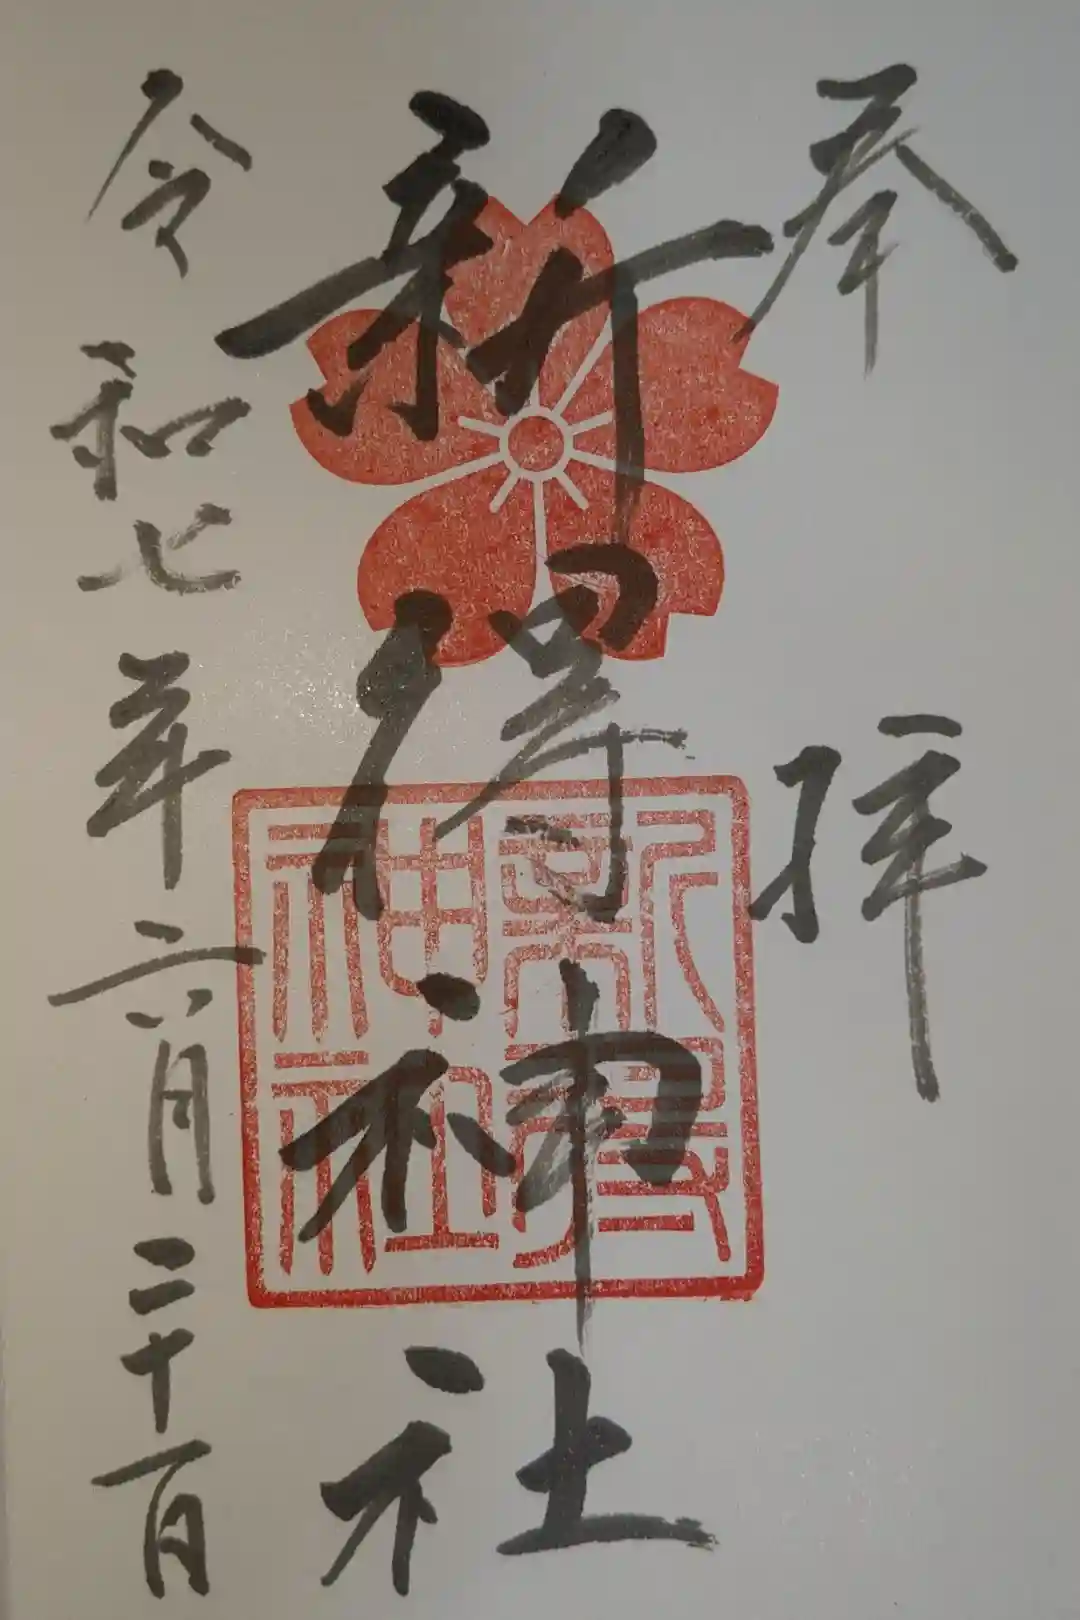 奉拝
新得神社
令和七年六月二十一日
新得
神社